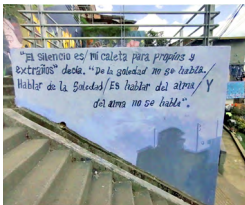 "El silencio es/ mi caleta para propios y
extraños" decía, "De la soledad no se habla./
Hablar de la Soledad/ Es hablar del alma/ Y
del alma no se habla".